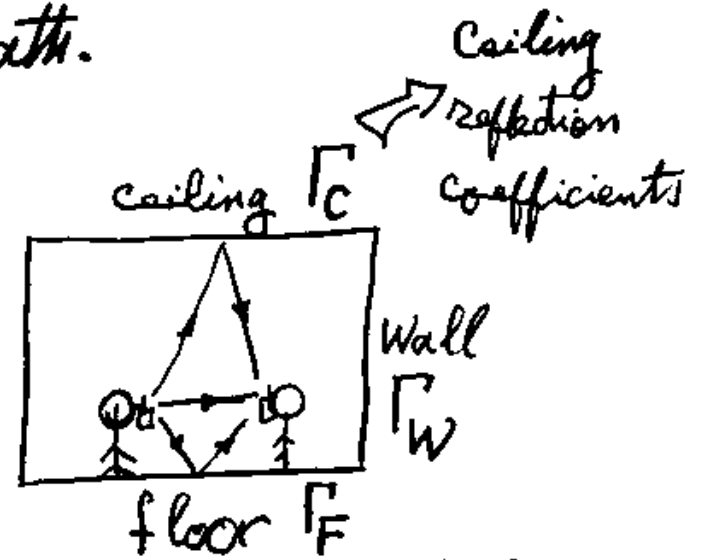 ath.
Ceiling
reflection
coefficients
ceiling Γ_C
Wall
Γ_W
floor Γ_F